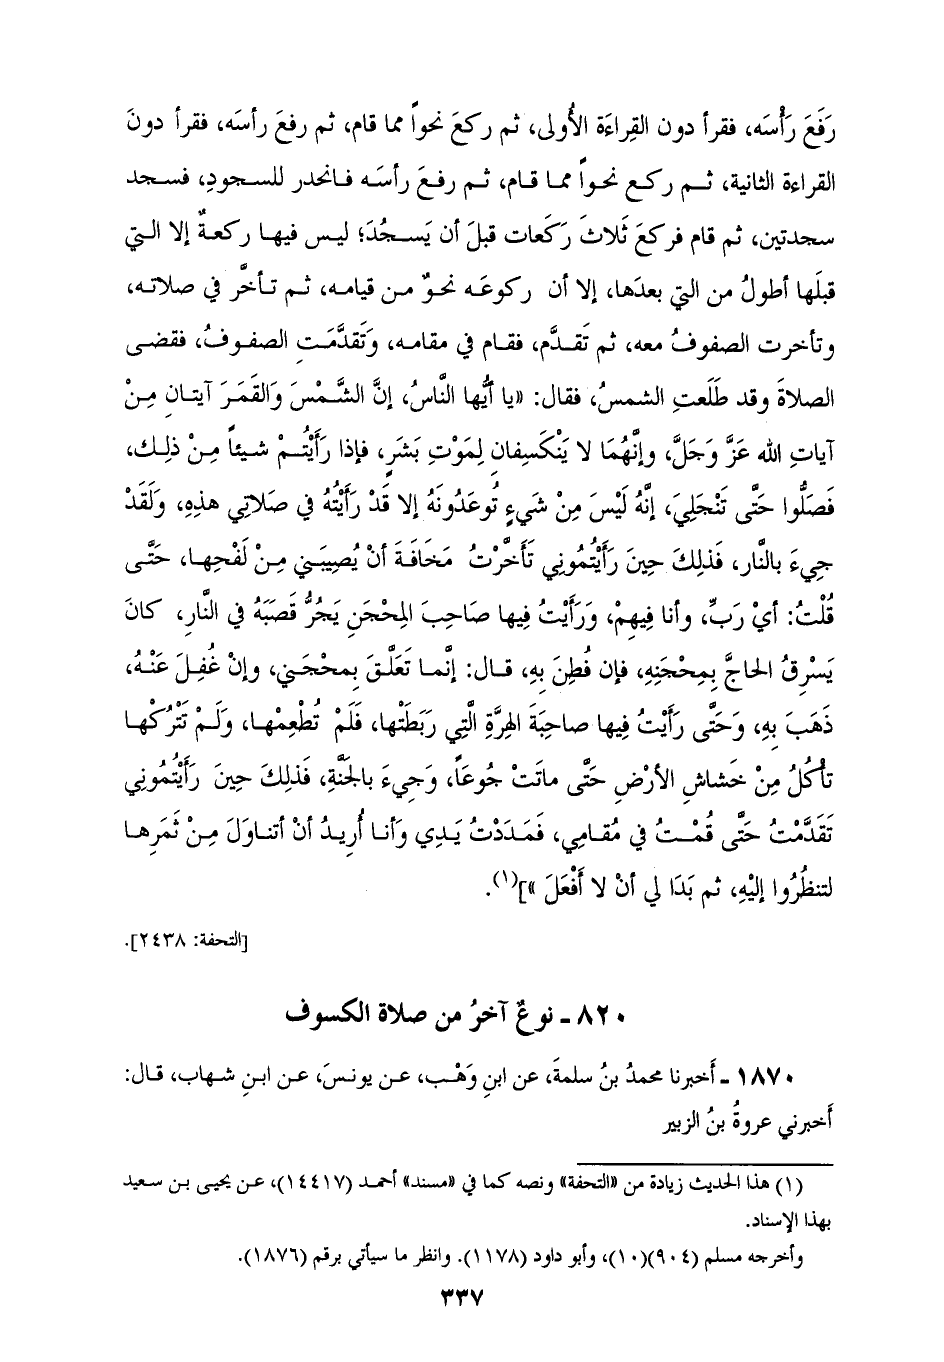 رَفَعَ رَأْسَه، فقرأ دون القِراءَة الأُولى، ثم ركعَ نحواً مما قام، ثم رفعَ رأسَه، فقرأ دونَ
القراءة الثانية، ثم ركع نحواً مما قام، ثم رفعَ رأسَه فانحدر للسجودِ، فسجد
سجدتين، ثم قام فركعَ ثَلاثَ رَكَعات قبلَ أن يَسجُدَ؛ ليس فيها ركعةٌ إلا التي
قبلَها أطولُ من التي بعدَها، إلا أن ركوعَه نحوٌ من قيامه، ثم تأخَّر في صلاته،
وتأخرت الصفوفُ معه، ثم تَقدَّم، فقام في مقامه، وَتَقدَّمَتِ الصفوفُ، فقضى
الصلاةَ وقد طَلَعتِ الشمسُ، فقال: «يا أَيُّها النَّاسُ، إنَّ الشَّمْسَ وَالقَمَرَ آيتانِ مِنْ
آياتِ الله عَزَّ وَجَلَّ، وإنَّهُمَا لا يَنْكَسِفانِ لِمَوْتِ بَشَرٍ، فإذا رَأَيْتُمْ شيئاً مِنْ ذلِك،
فَصَلُّوا حَتَّى تَنْجَلِيَ، إنَّهُ لَيْسَ مِنْ شَيءٍ تُوعَدُونَهُ إلا قَدْ رَأَيْتُهُ في صَلاتِي هذِهِ، وَلَقَدْ
جِيءَ بالنَّار، فَذلِكَ حِينَ رَأَيْتُمُونِي تَأَخَّرْتُ مَخَافَةَ أنْ يُصِيبَني مِنْ لَفْحِها، حَتَّى
قُلْتُ: أيْ رَبِّ، وأنا فِيهِمْ، وَرَأَيْتُ فِيها صَاحِبَ المِحْجَنِ يَجُرُّ قَصَبَهُ في النَّارِ، كانَ
يَسْرِقُ الحاجَّ بِمِحْجَنِهِ، فإن فُطِنَ بِهِ، قال: إنَّما تَعَلَّقَ بِمحْجَني، وإنْ غُفِلَ عَنْهُ،
ذَهَبَ بِهِ، وَحَتَّى رَأَيْتُ فِيها صاحِبَةَ الهِرَّةِ الَّتِي رَبَطَتْها، فَلَمْ تُطْعِمْها، وَلَمْ تَتْرُكْها
تأكُلُ مِنْ خَشاشِ الأرْضِ حَتَّى ماتَتْ جُوعاً، وَجِيءَ بالجَنَّةِ، فَذلِكَ حِينَ رَأَيْتُمُوني
تَقَدَّمْتُ حَتَّى قُمْتُ في مُقامِي، فَمَدَدْتُ يَدِي وَأنا أُرِيدُ أنْ أتناوَلَ مِنْ ثَمَرِها
لتنظُرُوا إلَيْهِ، ثم بَدَا لي أنْ لا أَفْعَلَ »](١).
[التحفة: ٢٤٣٨].
٨٢٠ ـ نوعٌ آخرُ من صلاة الكسوف
١٨٧٠ ـ أخبرنا محمدُ بنُ سلمةَ، عن ابنِ وَهْب، عن يونسَ، عن ابنِ شهاب، قال:
أخبرني عروةُ بنُ الزبير
(١) هذا الحديث زيادة من «التحفة» ونصه كما في «مسند» أحمد (١٤٤١٧)، عن يحيى بن سعيد
بهذا الإسناد.
وأخرجه مسلم (٩٠٤)(١٠)، وأبو داود (١١٧٨). وانظر ما سيأتي برقم (١٨٧٦).
٣٣٧